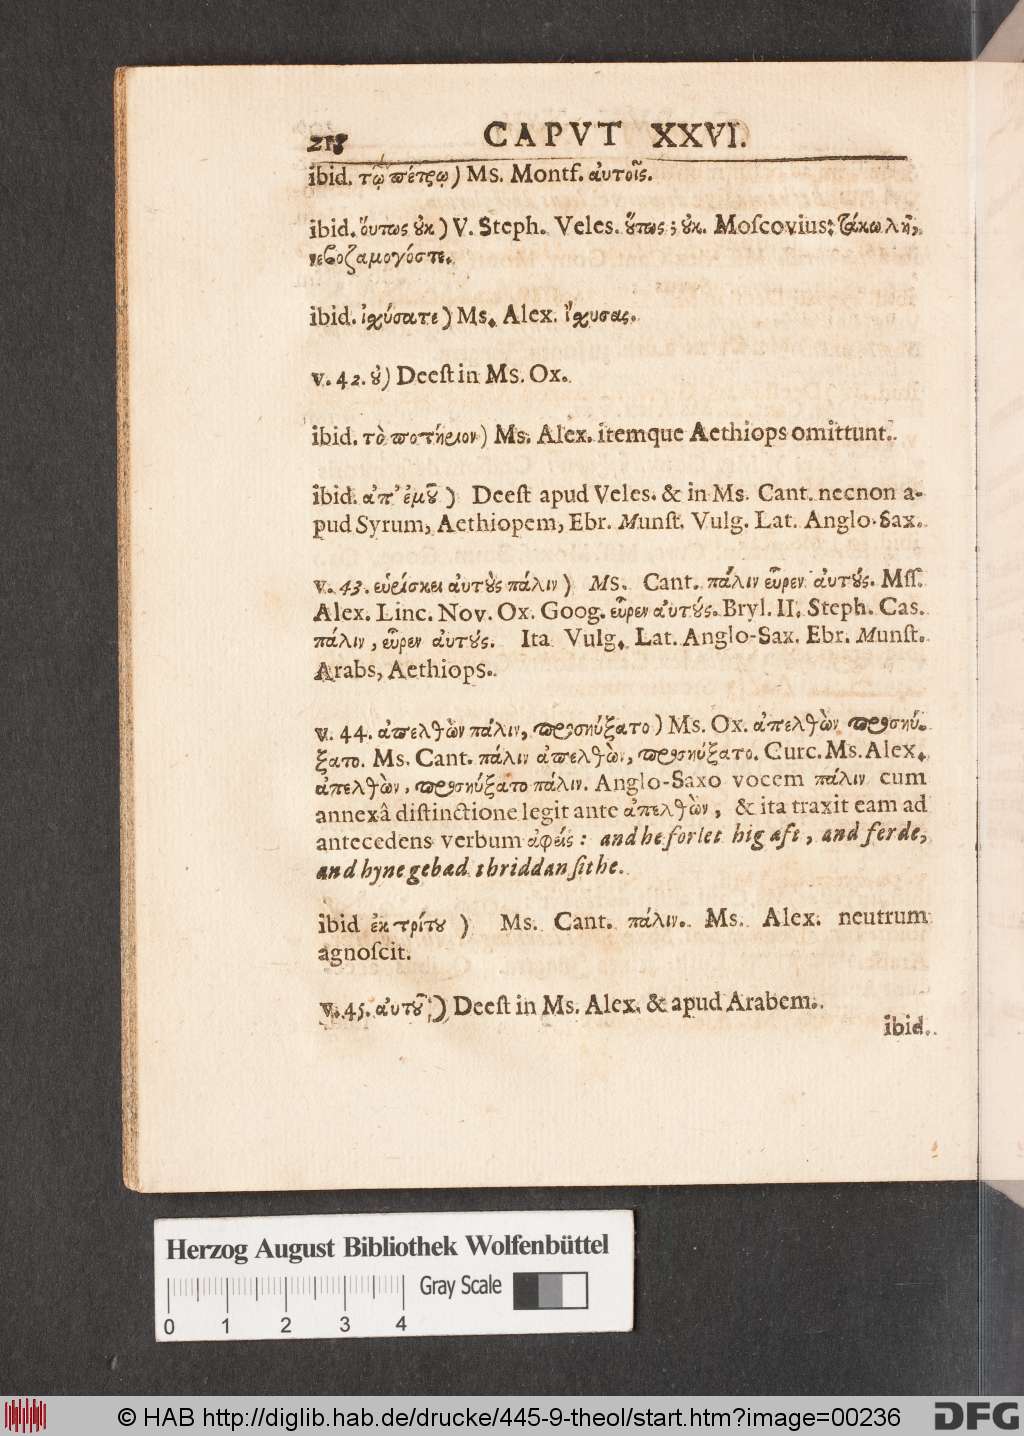 218 CAPVT XXVI.
ibid. τῷ πέτρῳ) Ms. Montf. ἀυτοῖς.
ibid. ὅυτως ȣ̓κ) V. Steph. Veles. ȣ̔́τως; ȣ̓κ. Moſcovius:
νεβοζαμογόστε.
ibid. ἰχύσατε) Ms. Alex. ἴχυσας.
v. 42. ȣ̓) Deeſt in Ms. Ox.
ibid. τὸ ποτήριον) Ms. Alex. itemque Aethiops omittunt.
ibid. ἀπ' ἐμȣ͂) Deeſt apud Veles. & in Ms. Cant. necnon a-
pud Syrum, Aethiopem, Ebr. Munſt. Vulg. Lat. Anglo-Sax.
v. 43. εὑρίσκει ἀυτȣ̀ς πάλιν) Ms. Cant. πάλιν εὗρεν ἀυτȣ́ς. Mſſ.
Alex. Linc. Nov. Ox. Goog. εὗρεν ἀυτȣ́ς. Bryl. II. Steph. Cas.
πάλιν, εὗρεν ἀυτȣ́ς. Ita Vulg. Lat. Anglo-Sax. Ebr. Munſt.
Arabs, Aethiops.
v. 44. ἀπελθὼν πάλιν, προσηύξατο) Ms. Ox. ἀπελθὼν προσηύ-
ξατο. Ms. Cant. πάλιν ἀπελθὼν, προσηύξατο. Curc. Ms. Alex.
ἀπελθὼν, προσηύξατο πάλιν. Anglo-Saxo vocem πάλιν cum
annexâ diſtinctione legit ante ἀπελθὼν, & ita traxit eam ad
antecedens verbum ἀφείς: and he forlet hig aft, and ferde,
and hyne gebad thriddan ſithe.
ibid ἐκ τρίτȣ) Ms. Cant. πάλιν. Ms. Alex. neutrum
agnoſcit.
v. 45. ἀυτȣ͂) Deeſt in Ms. Alex. & apud Arabem.
ibid.
Herzog August Bibliothek Wolfenbüttel
Gray Scale
0 1 2 3 4
© HAB http://diglib.hab.de/drucke/445-9-theol/start.htm?image=00236
DFG